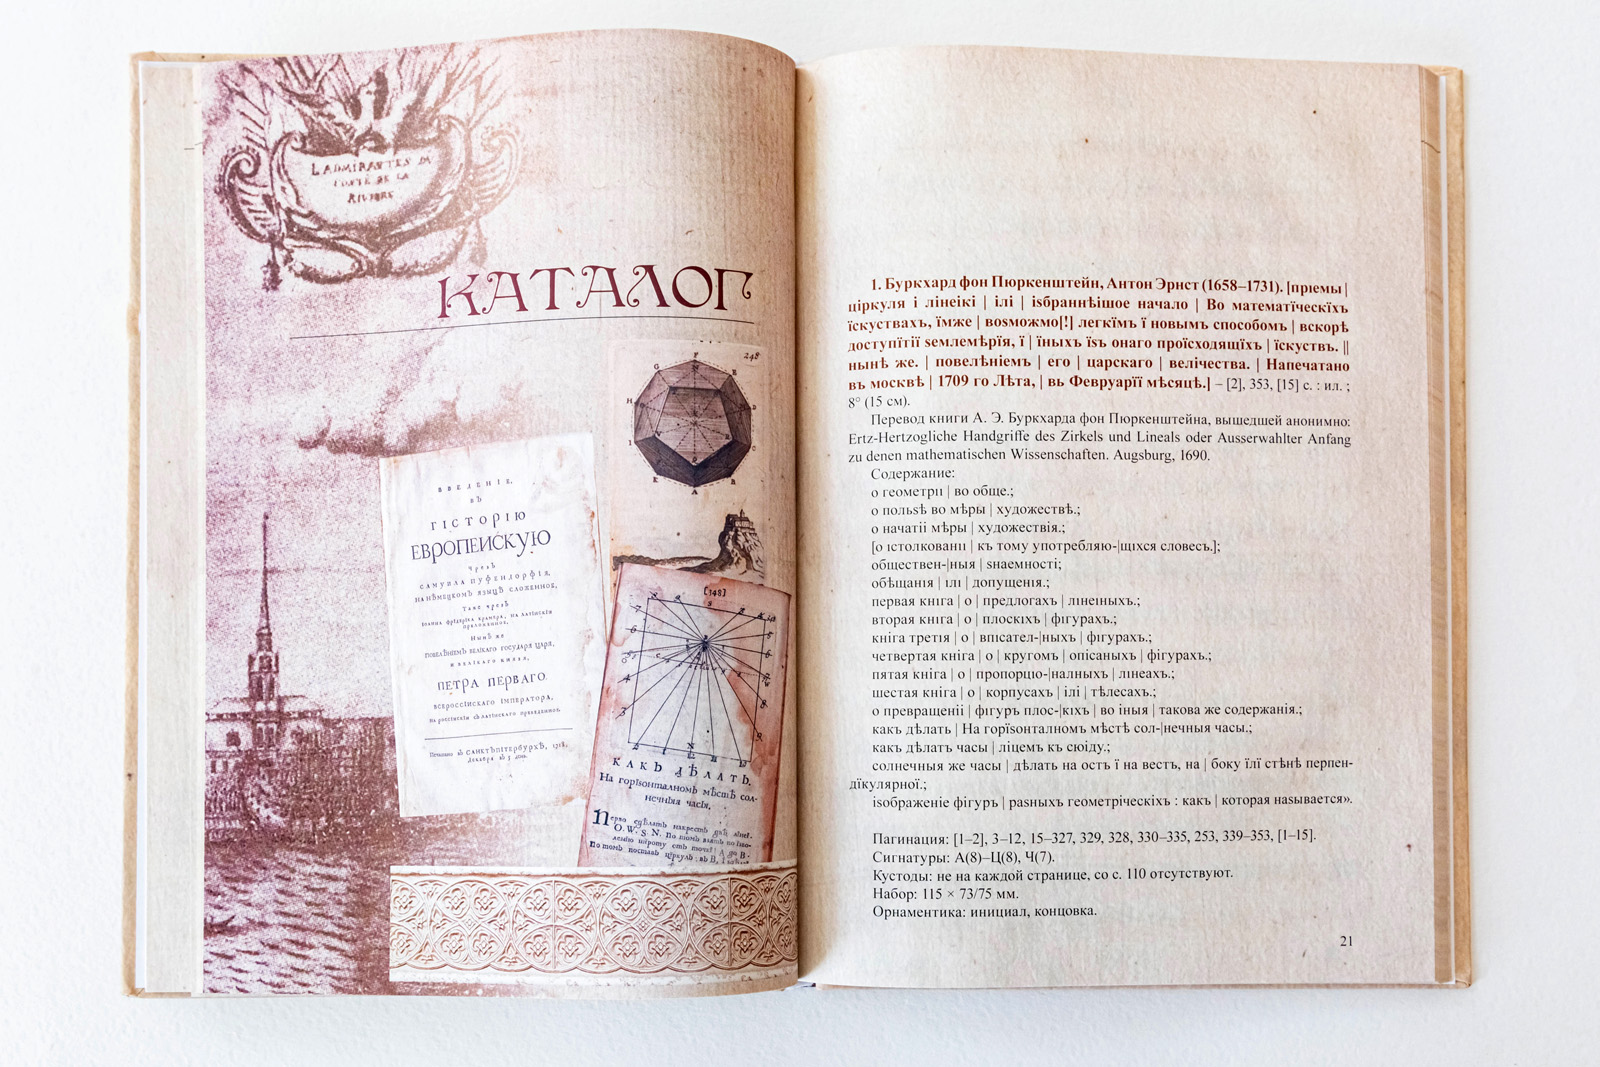 LADMIRAUTES DU
COSTÉ DE LA
RIVIERE
КАТАЛОГ
248
ВВЕДЕНІЕ,
ВЪ
ГІСТОРІЮ
ЕВРОПЕИСКУЮ
Чрезъ
САМУИЛА ПУФЕНДОРФІЯ,
НА НѢМЕЦКОМЪ ЯЗЫЦѢ СЛОЖЕННОЕ,
Таже чрезъ
ІОАННА ФРІДЕРІКА КРАМЕРА, НА ЛАТІНСКІИ
ПРЕЛОЖЕННОЕ,
Нынѣ же
ПОВЕЛѢНІЕМЪ ВЕЛІКАГО ГОСУДАРЯ ЦАРЯ,
И ВЕЛІКАГО КНЯЗЯ,
ПЕТРА ПЕРВАГО.
ВСЕРОССІИСКАГО ІМПЕРАТОРА,
НА РОССІИСКІИ СЪ ЛАТІНСКАГО ПРЕВЕДЕННОЕ
Печатано въ САНКТЪПІТЕРБУРХѢ, 1718.
Декабря въ 5 день.
[148]
КАКЪ ДѢЛАТЬ.
На горїзонталномъ мѣстѣ сол-
нечныя часы,
Перво сдѣлать накрестъ двѣ лінеі.
O. W. S. N. по томъ взять по ізво-
ленію шіроту отъ точкі A до B.
По томъ поставь ціркуль въ B,
1. Буркхард фон Пюркенштейн, Антон Эрнст (1658–1731). [прıемы |
ціркуля і лінеікі | ілі | ізбраннѣішое начало | Во математїческїхъ
їскуствахъ, їмже | возможмо[!] легкїмъ ї новымъ способомъ | вскорѣ
доступїтїі ѕемлемѣрїя, ї | їныхъ їѕъ онаго проїсходящїхъ | їскуствъ. ||
нынѣ же. | повелѣніемъ | его | царскаго | велічества. | Напечатано
въ москвѣ | 1709 го Лѣта, | вь Февруарїї мѣсяцѣ.] – [2], 353, [15] с. : ил. ;
8° (15 см).
Перевод книги А. Э. Буркхарда фон Пюркенштейна, вышедшей анонимно:
Ertz-Hertzogliche Handgriffe des Zirkels und Lineals oder Ausserwahlter Anfang
zu denen mathematischen Wissenschaften. Augsburg, 1690.
Содержание:
о геометріı | во обще.;
о польѕѣ во мѣры | художествѣ.;
о начатіі мѣры | художествія.;
[о істолкованіı | къ тому употребляю-|щіхся словесъ.];
обществен-|ныя | ѕнаемності;
обѣщанія | ілі | допущенія.;
первая кніга | о | предлогахъ | лінеіныхъ.;
вторая кніга | о | плоскіхъ | фігурахъ.;
кніга третія | о | впісател-|ныхъ | фігурахъ.;
четвертая кніга | о | кругомъ | опісаныхъ | фігурахъ.;
пятая кніга | о | пропорцıо-|налныхъ | лінеахъ.;
шестая кніга | о | корпусахъ | ілі | тѣлесахъ.;
о превращеніі | фігуръ плос-|кіхъ | во іныя | такова же содержанія.;
какъ дѣлать | На горїѕонталномъ мѣстѣ сол-|нечныя часы.;
какъ дѣлать часы | ліцемъ къ сюіду.;
солнечныя же часы | дѣлать на остъ ї на вестъ, на | боку їлї стѣнѣ перпен-
дїкулярної.;
іѕображеніе фігуръ | раѕныхъ геометріческіхъ : какъ | которая наѕывается».
Пагинация: [1–2], 3–12, 15–327, 329, 328, 330–335, 253, 339–353, [1–15].
Сигнатуры: А(8)–Ц(8), Ч(7).
Кустоды: не на каждой странице, со с. 110 отсутствуют.
Набор: 115 × 73/75 мм.
Орнаментика: инициал, концовка.
21